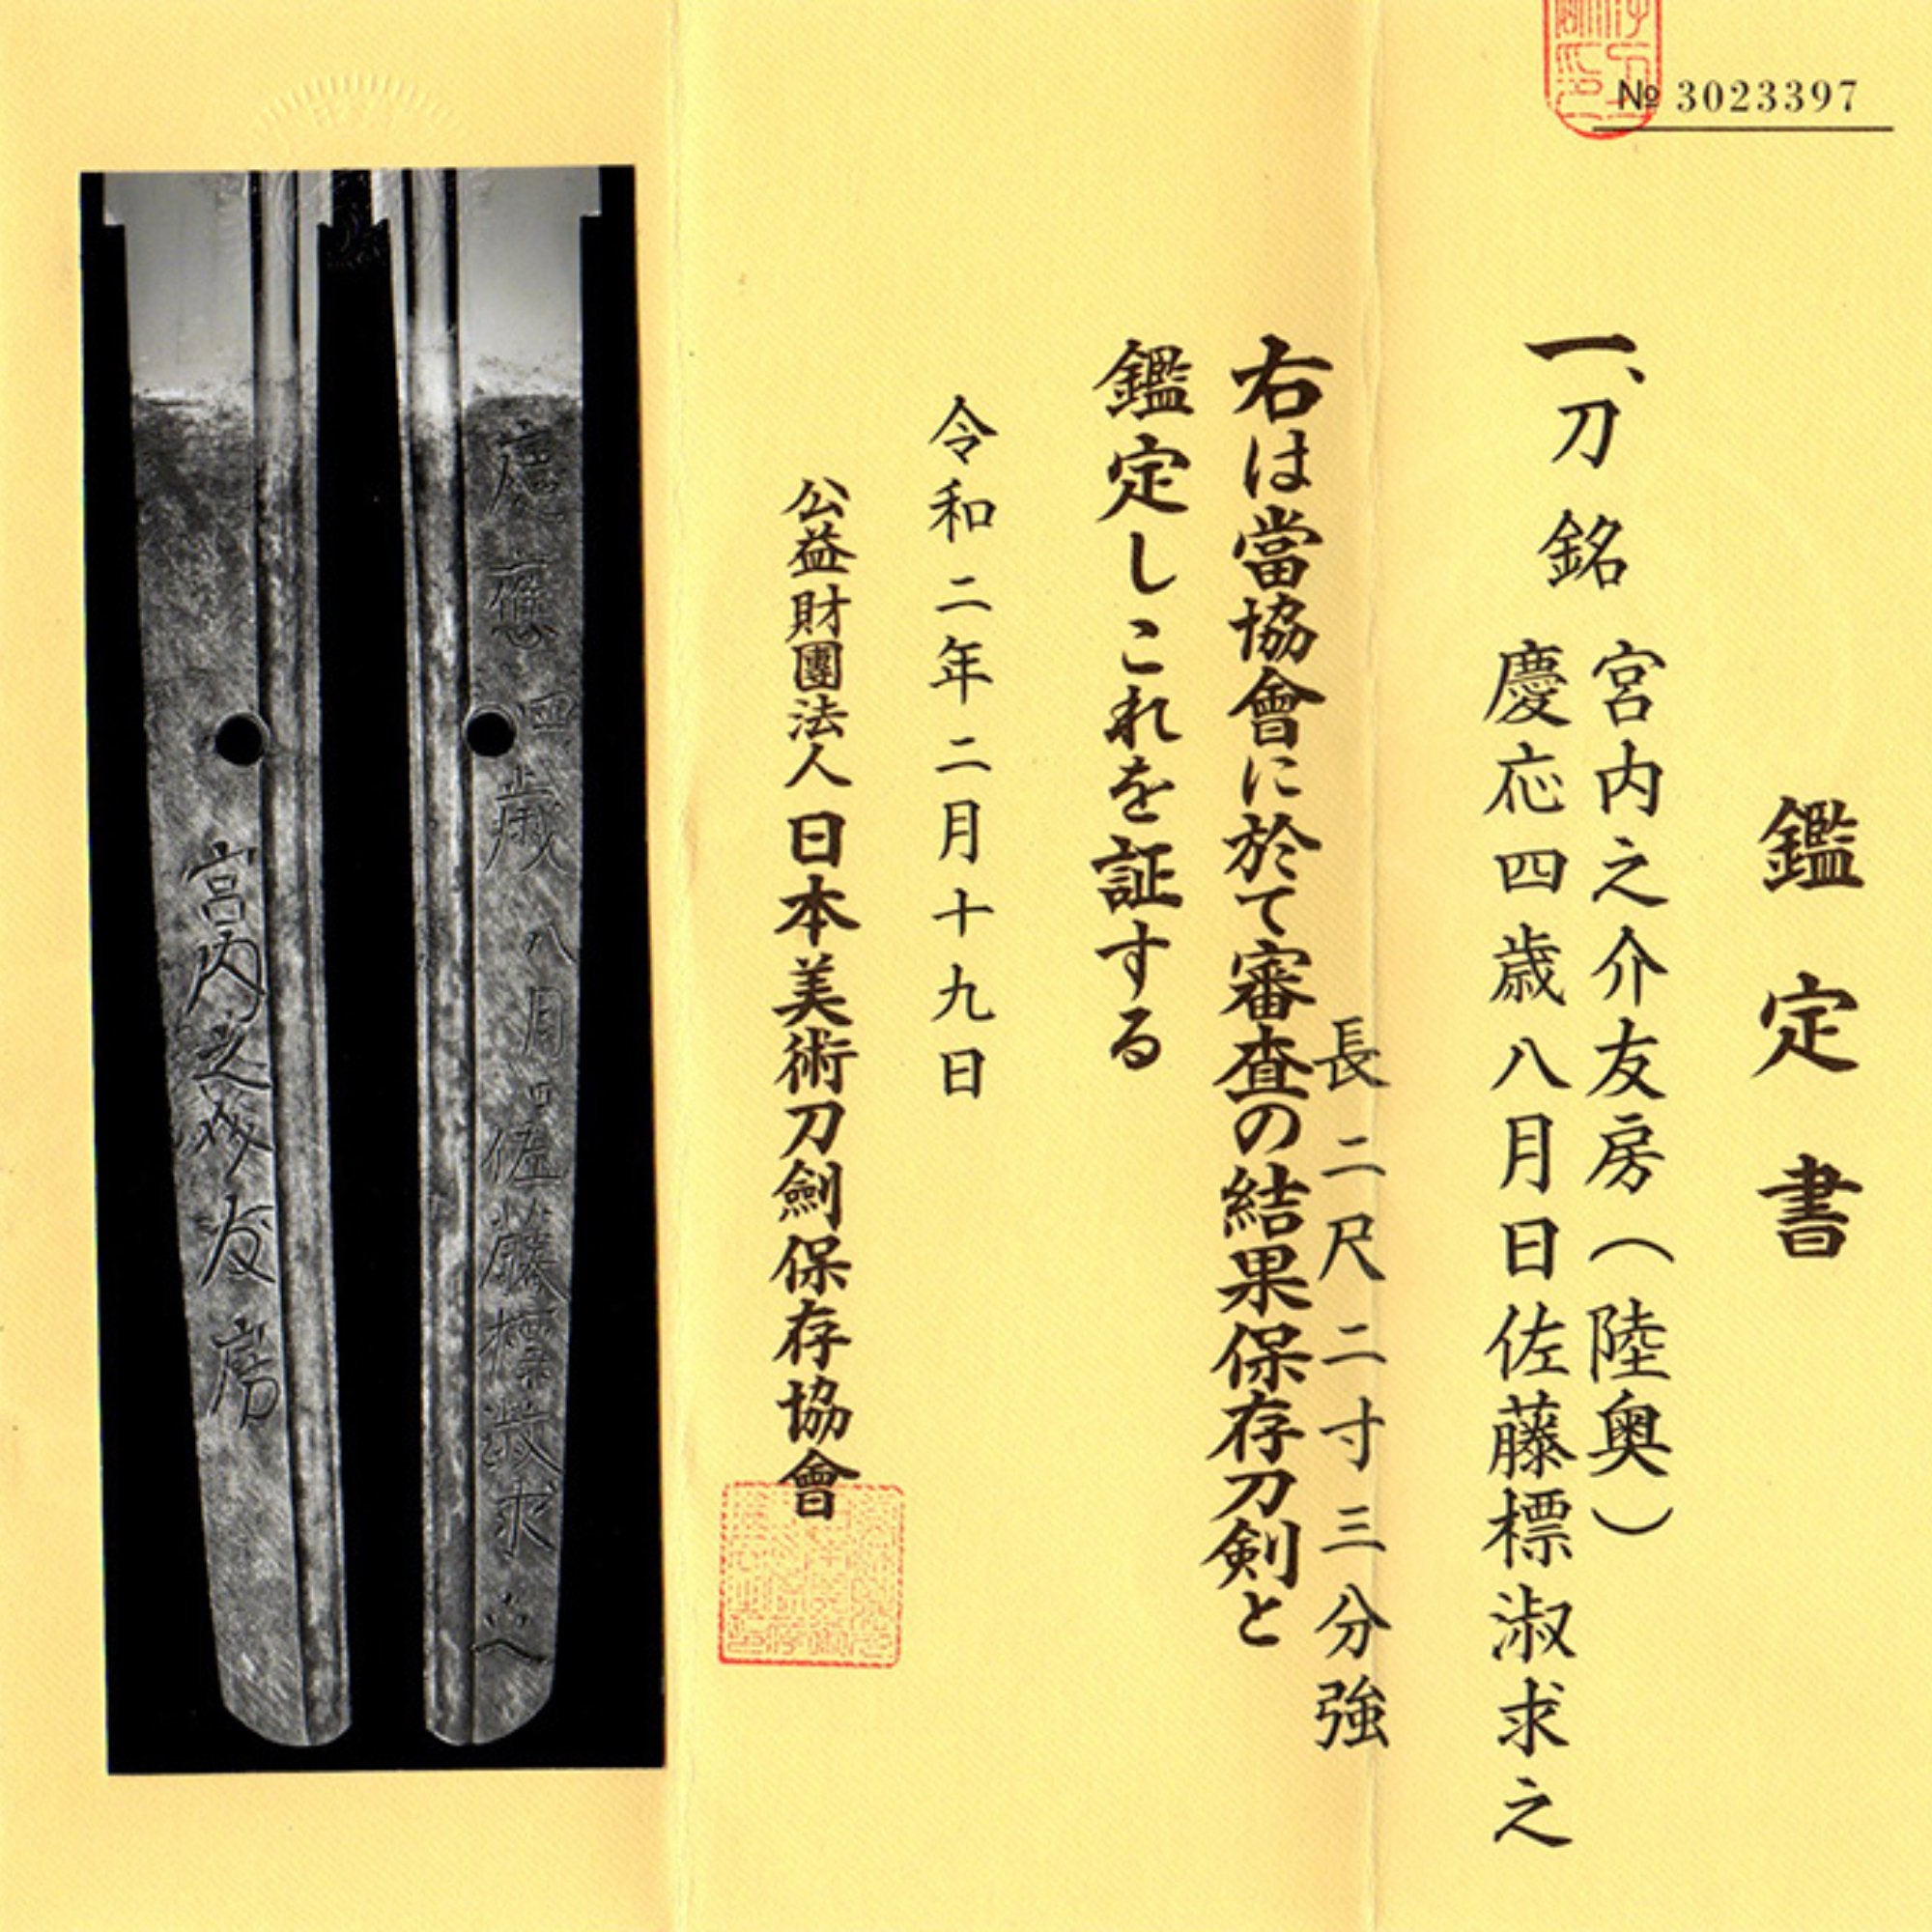 № 3023397
鑑定書
一、刀 銘 宮内之介友房(陸奥)
慶応四歳八月日佐藤標淑求之
長 二尺二寸三分強
右は當協會に於て審査の結果保存刀剣と
鑑定しこれを証する
令和二年二月十九日
公益財團法人日本美術刀劍保存協會
慶應四歳八月日佐藤標淑求之
宮内之介友房